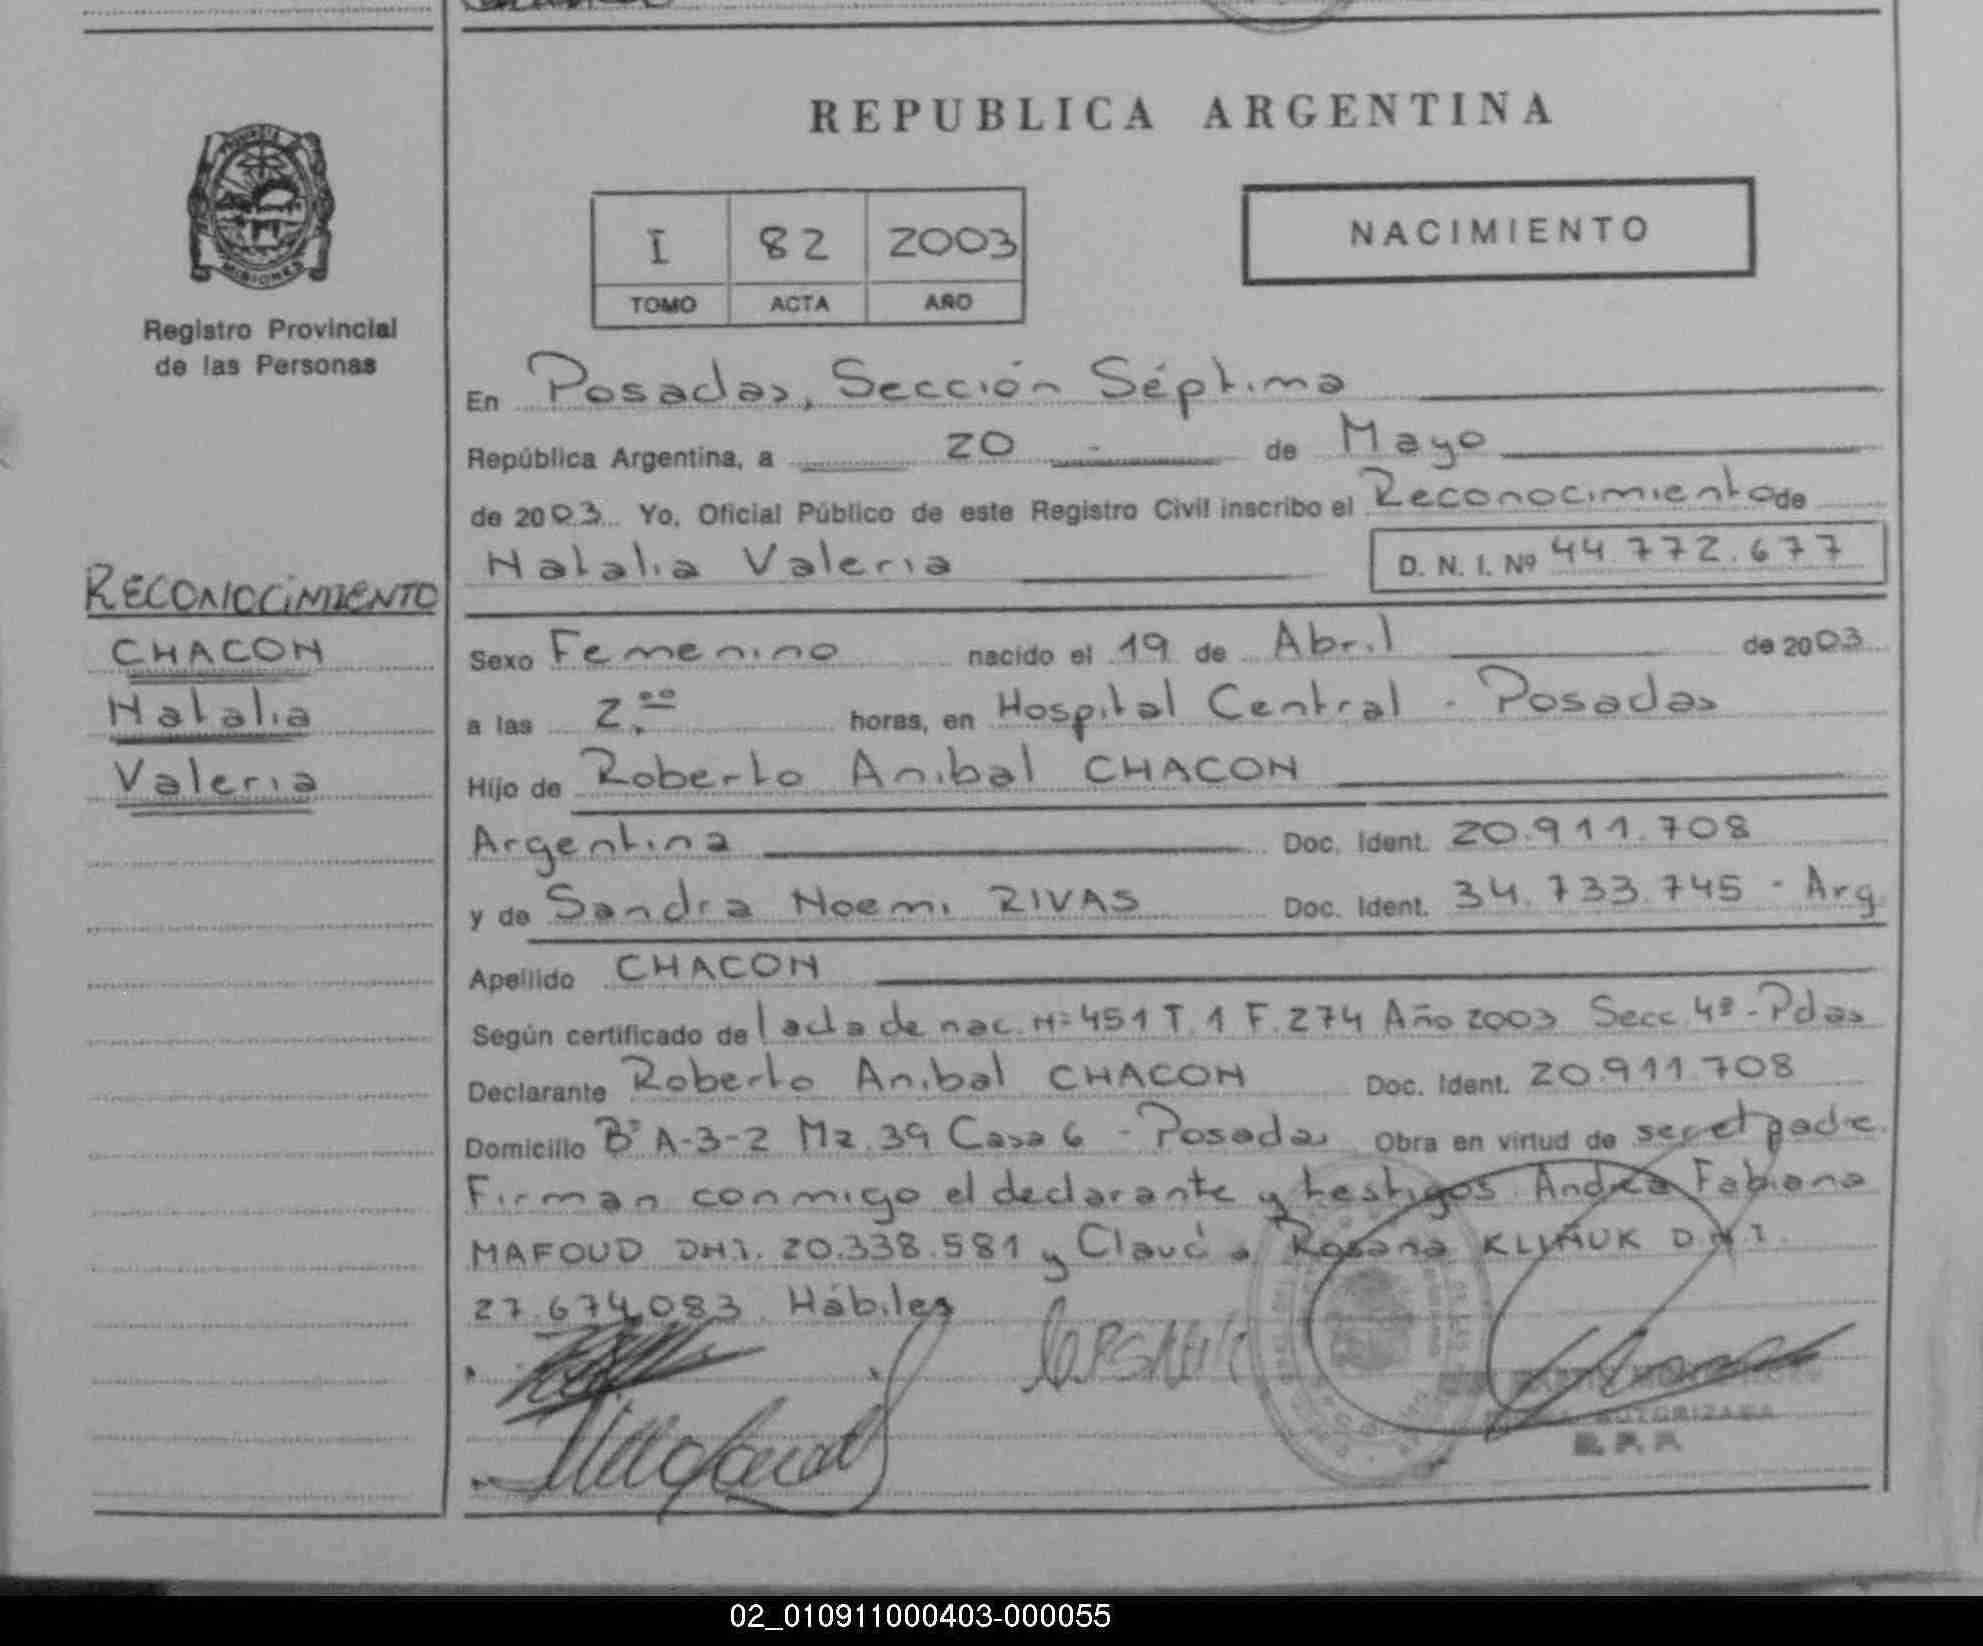 REPUBLICA ARGENTINA
PROVINCIA
MISIONES
Registro Provincial
de las Personas
I 82 2003
TOMO ACTA AÑO
NACIMIENTO
En Posadas, Sección Séptima
República Argentina, a 20 - de Mayo
de 2003 Yo, Oficial Público de este Registro Civil inscribo el Reconocimiento de
Natalia Valeria D. N. I. Nº 44.772.677
RECONOCIMIENTO
CHACON
Natalia
Valeria
Sexo Femenino nacido el 19 de Abril de 2003
a las 2.00 horas, en Hospital Central - Posadas
Hijo de Roberto Anibal CHACON
Argentina Doc. Ident. 20.911.708
y de Sandra Noemi RIVAS Doc. Ident. 34.733.745 - Arg
Apellido CHACON
Según certificado de l acta de nac. Nº 451 T. 1 F. 274 Año 2003 Secc. 4ª - Pdas
Declarante Roberto Anibal CHACON Doc. Ident. 20.911.708
Domicilio Bº A-3-2 Mz 39 Casa 6 - Posadas Obra en virtud de ser el padre.
Firman conmigo el declarante y testigos Andrea Fabiana
MAFOUD DNI. 20.338.581 y Claudia Rosana KLIÑUK D.N.I.
27.674.083. Hábiles
AUTORIZADA
02_010911000403-000055